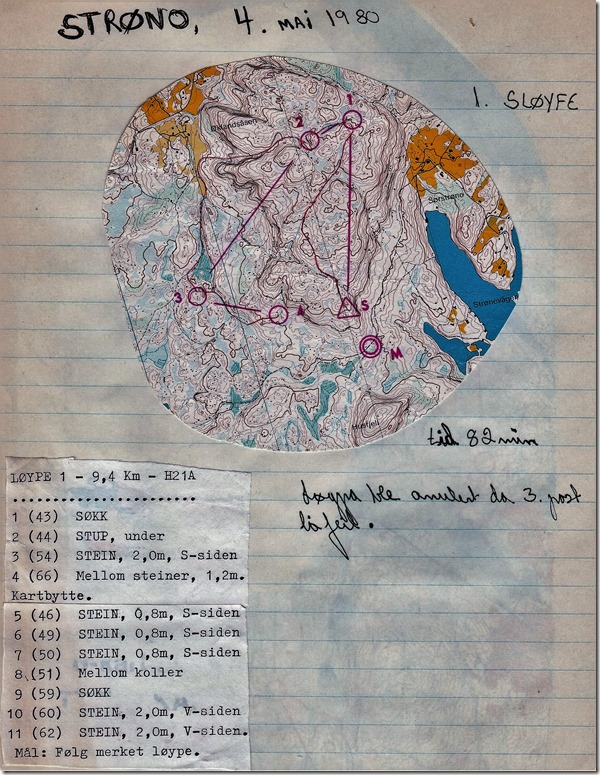 STRØNO, 4. MAI 1980
1. SLØYFE
1
2
Ørlandsåsen
Sørstrøno
3
4
S
Strønevågen
M
Husfjell
tid 82 min
Løypa ble anulert da 3. post
lå feil.
LØYPE 1 - 9,4 Km - H21A
..............................
1 (43) SØKK
2 (44) STUP, under
3 (54) STEIN, 2,0m, S-siden
4 (66) Mellom steiner, 1,2m.
Kartbytte.
5 (46) STEIN, 0,8m, S-siden
6 (49) STEIN, 0,8m, S-siden
7 (50) STEIN, 0,8m, S-siden
8 (51) Mellom koller
9 (59) SØKK
10 (60) STEIN, 2,0m, V-siden
11 (62) STEIN, 2,0m, V-siden.
Mål: Følg merket løype.